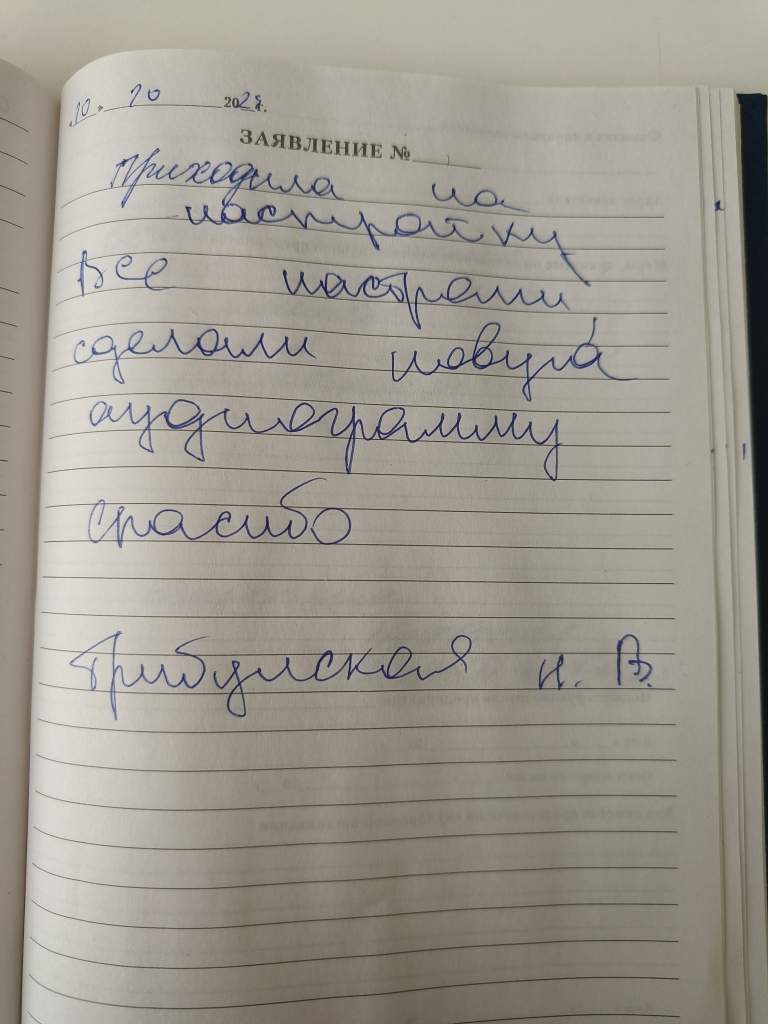 10. 10 2024г.
ЗАЯВЛЕНИЕ №
Приходила на
настройку
Все настроили,
сделали новую
аудиограмму
спасибо
Трибунская Н. В.